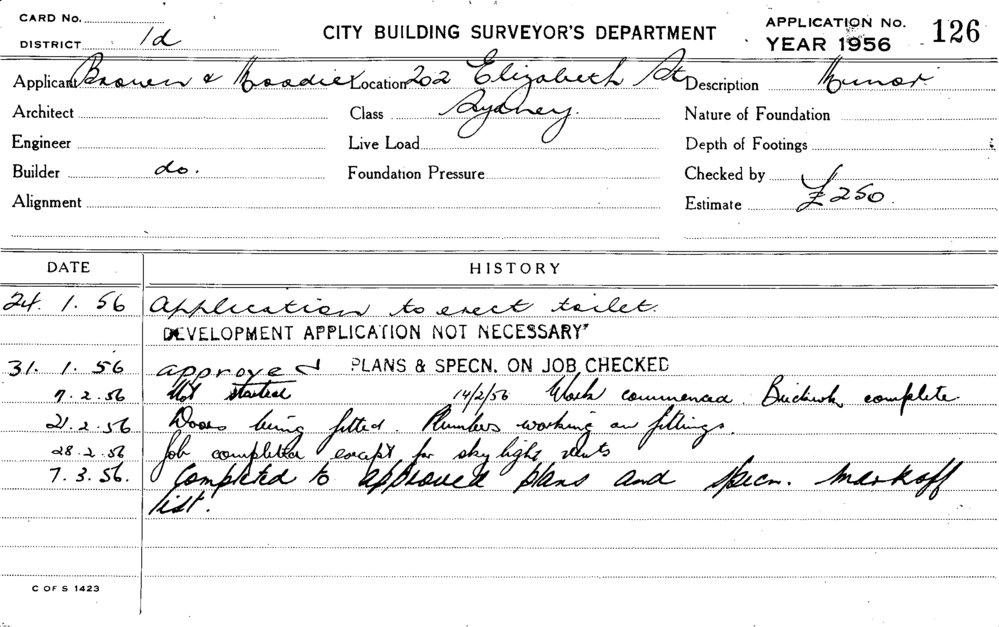 CARD No.
DISTRICT 1d
CITY BUILDING SURVEYOR'S DEPARTMENT
APPLICATION No. 126
YEAR 1956
Applicant Brown & Moodie Location 202 Elizabeth St Description Minor
Architect Class Sydney. Nature of Foundation
Engineer Live Load Depth of Footings
Builder do. Foundation Pressure Checked by
Alignment Estimate £250
DATE HISTORY
24. 1. 56 Application to erect toilet.
DEVELOPMENT APPLICATION NOT NECESSARY
31. 1. 56 approved PLANS & SPECN. ON JOB CHECKED
7.2.56 Not started 14/2/56 Work commenced. Brickwk complete
21.2.56 Doors being fitted. Plumbers working on fittings.
28.2.56 Job completed except for sky light vents
7.3.56. Completed to approved plans and specn. markoff
list.
C OF S 1423